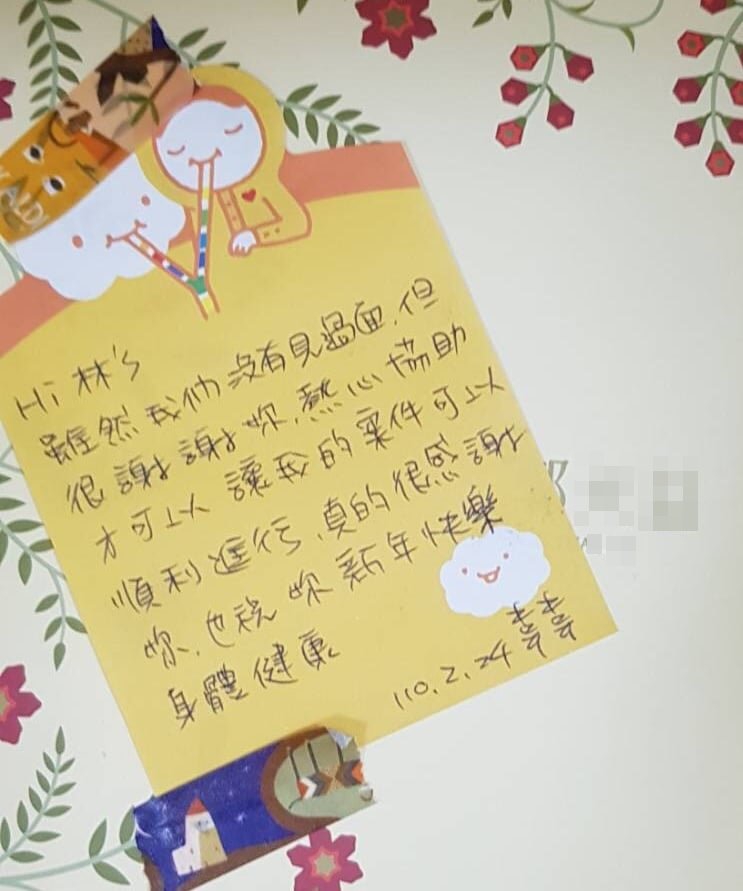 Hi 林's
雖然我們沒有見過面,但
很謝謝妳,熱心協助
才可以讓我的案件可以
順利進行,真的很感謝
妳,也祝妳新年快樂
身體健康
110.2.24